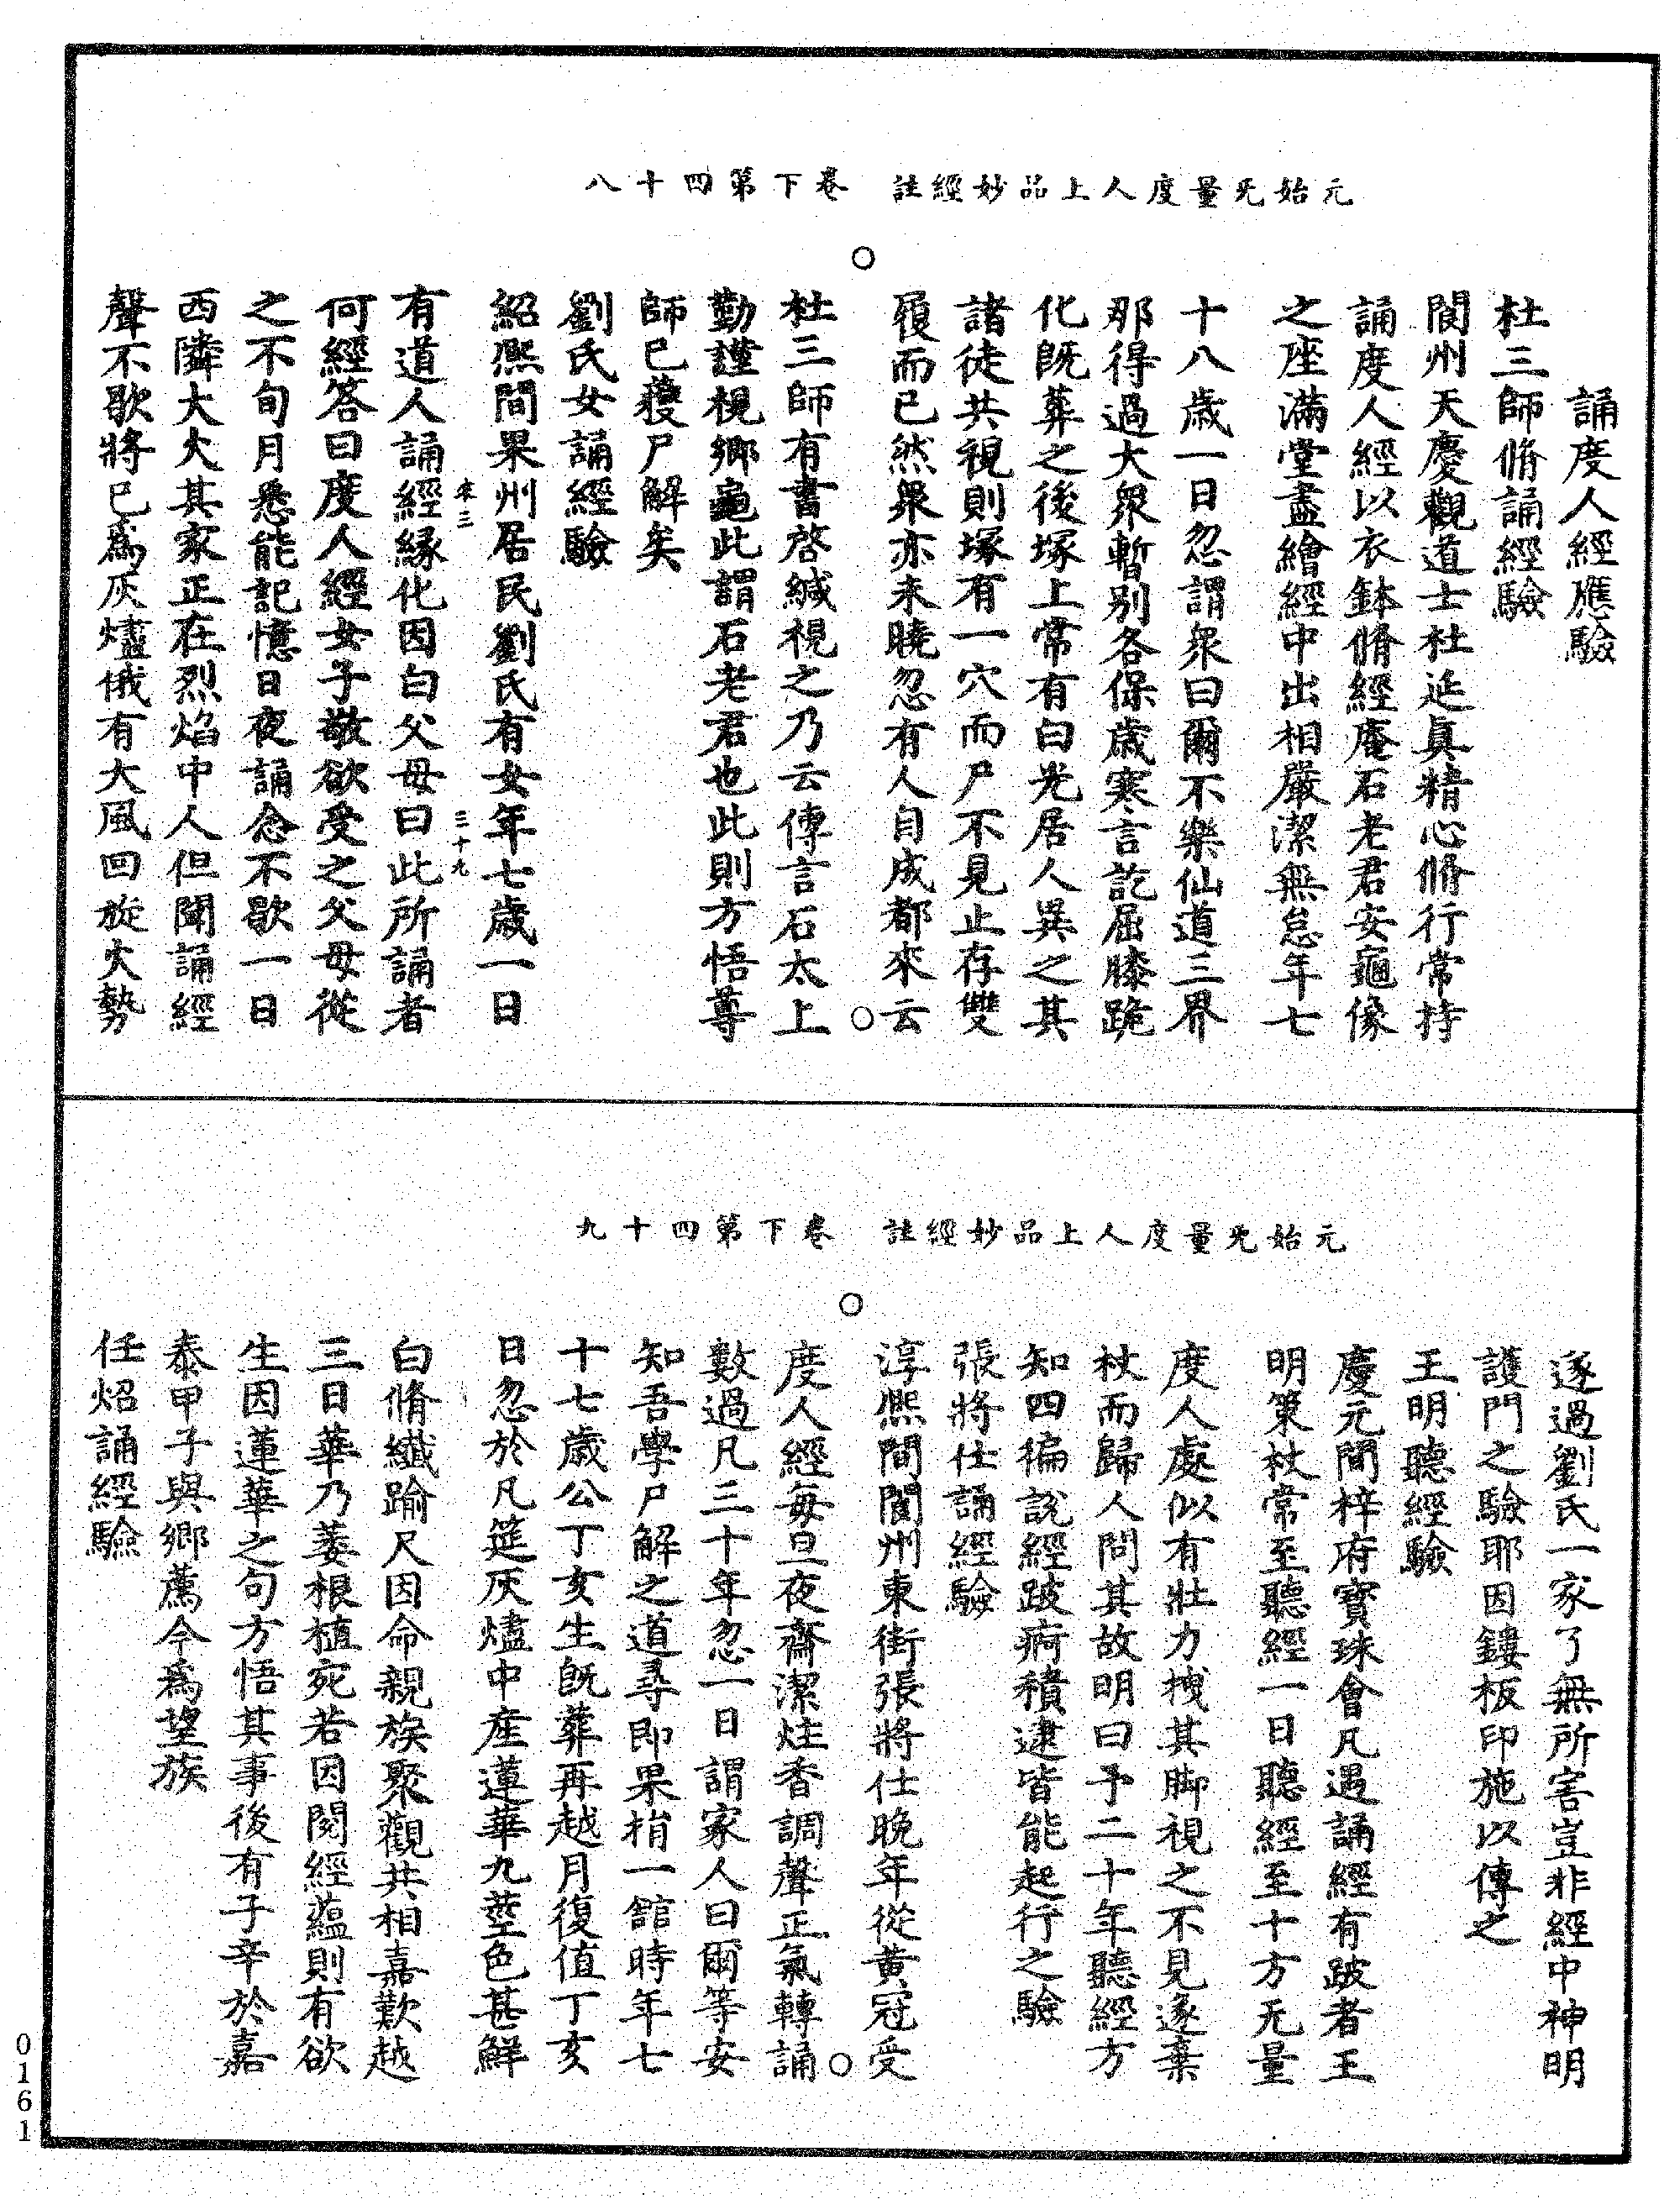 元始无量度人上品妙經註　卷下第四十八
誦度人經應驗
杜三師脩誦經驗
閬州天慶觀道士杜延真精心脩行常持
誦度人經以衣鉢脩經庵石老君安龕像
之座滿堂盡繪經中出相嚴潔無怠年七
十八歲一日忽謂衆曰爾不樂仙道三界
那得過大衆暫别各保歲寒言訖屈膝跪
化旣葬之後塚上常有白光居人異之其
諸徒共視則塚有一穴而尸不見止存雙
履而已然衆亦未曉忽有人自成都來云
杜三師有書啓緘視之乃云傳言石太上
勤謹視鄉龕此謂石老君也此則方悟尊
師已蛻尸解矣
劉氏女誦經驗
紹熈間果州居民劉氏有女年七歲一日
來三　三十九
有道人誦經緣化因白父母曰此所誦者
何經答曰度人經女子敬欲受之父母從
之不旬月悉能記憶日夜誦念不歇一日
西隣大火其家正在烈焰中人但聞誦經
聲不歇將已爲灰燼俄有大風回旋火勢
元始无量度人上品妙經註　卷下第四十九
遂過劉氏一家了無所害豈非經中神明
護門之驗耶因鏤板印施以傳之
王明聽經驗
慶元間梓府寶珠會凡遇誦經有跛者王
明策杖常至聽經一日聽經至十方无量
度人處似有壯力拽其脚視之不見遂棄
杖而歸人問其故明曰予二十年聽經方
知四徧說經跛痾積逮皆能起行之驗
張將仕誦經驗
淳熈間閬州東街張將仕晚年從黄冠受
度人經每旦夜齋潔炷香調聲正氣轉誦
數過凡三十年忽一日謂家人曰爾等安
知吾學尸解之道尋即果捐一舘時年七
十七歲公丁亥生旣葬再越月復值丁亥
日忽於凡筵灰燼中産蓮華九莖色甚鮮
白脩纖踰尺因命親族聚觀共相嘉歎越
三日華乃萎根植宛若因閱經蘊則有欲
生因蓮華之句方悟其事後有子辛於嘉
泰甲子與鄉薦今爲望族
任炤誦經驗
0161